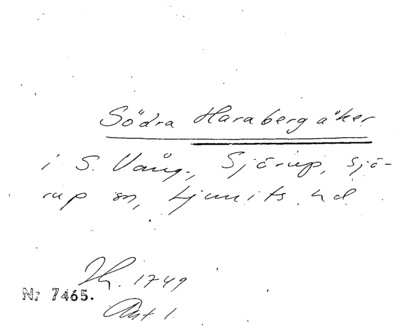 Södra Haraberg åker
i S. Vång., Sjörup, Sjö-
rup sn, Ljunits hd
Lh. 1749
Nr 7465.
Akt 1.